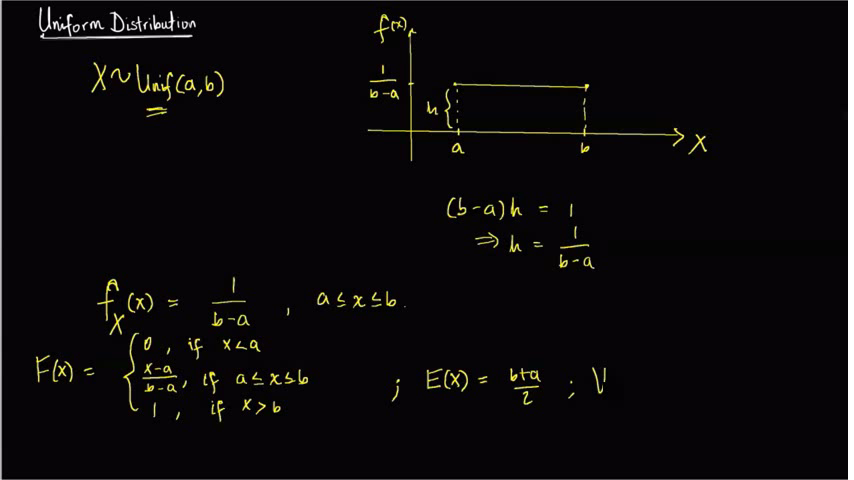 Uniform Distribution
X ~ Unif(a,b)
f(x)
1/(b-a)
h
a
b
X
(b-a)h = 1
⇒ h = 1/(b-a)
f_X(x) = 1/(b-a) , a ≤ x ≤ b.
F(x) = { 0 , if x < a
(x-a)/(b-a) , if a ≤ x ≤ b
1 , if x > b
; E(X) = (b+a)/2 ; V